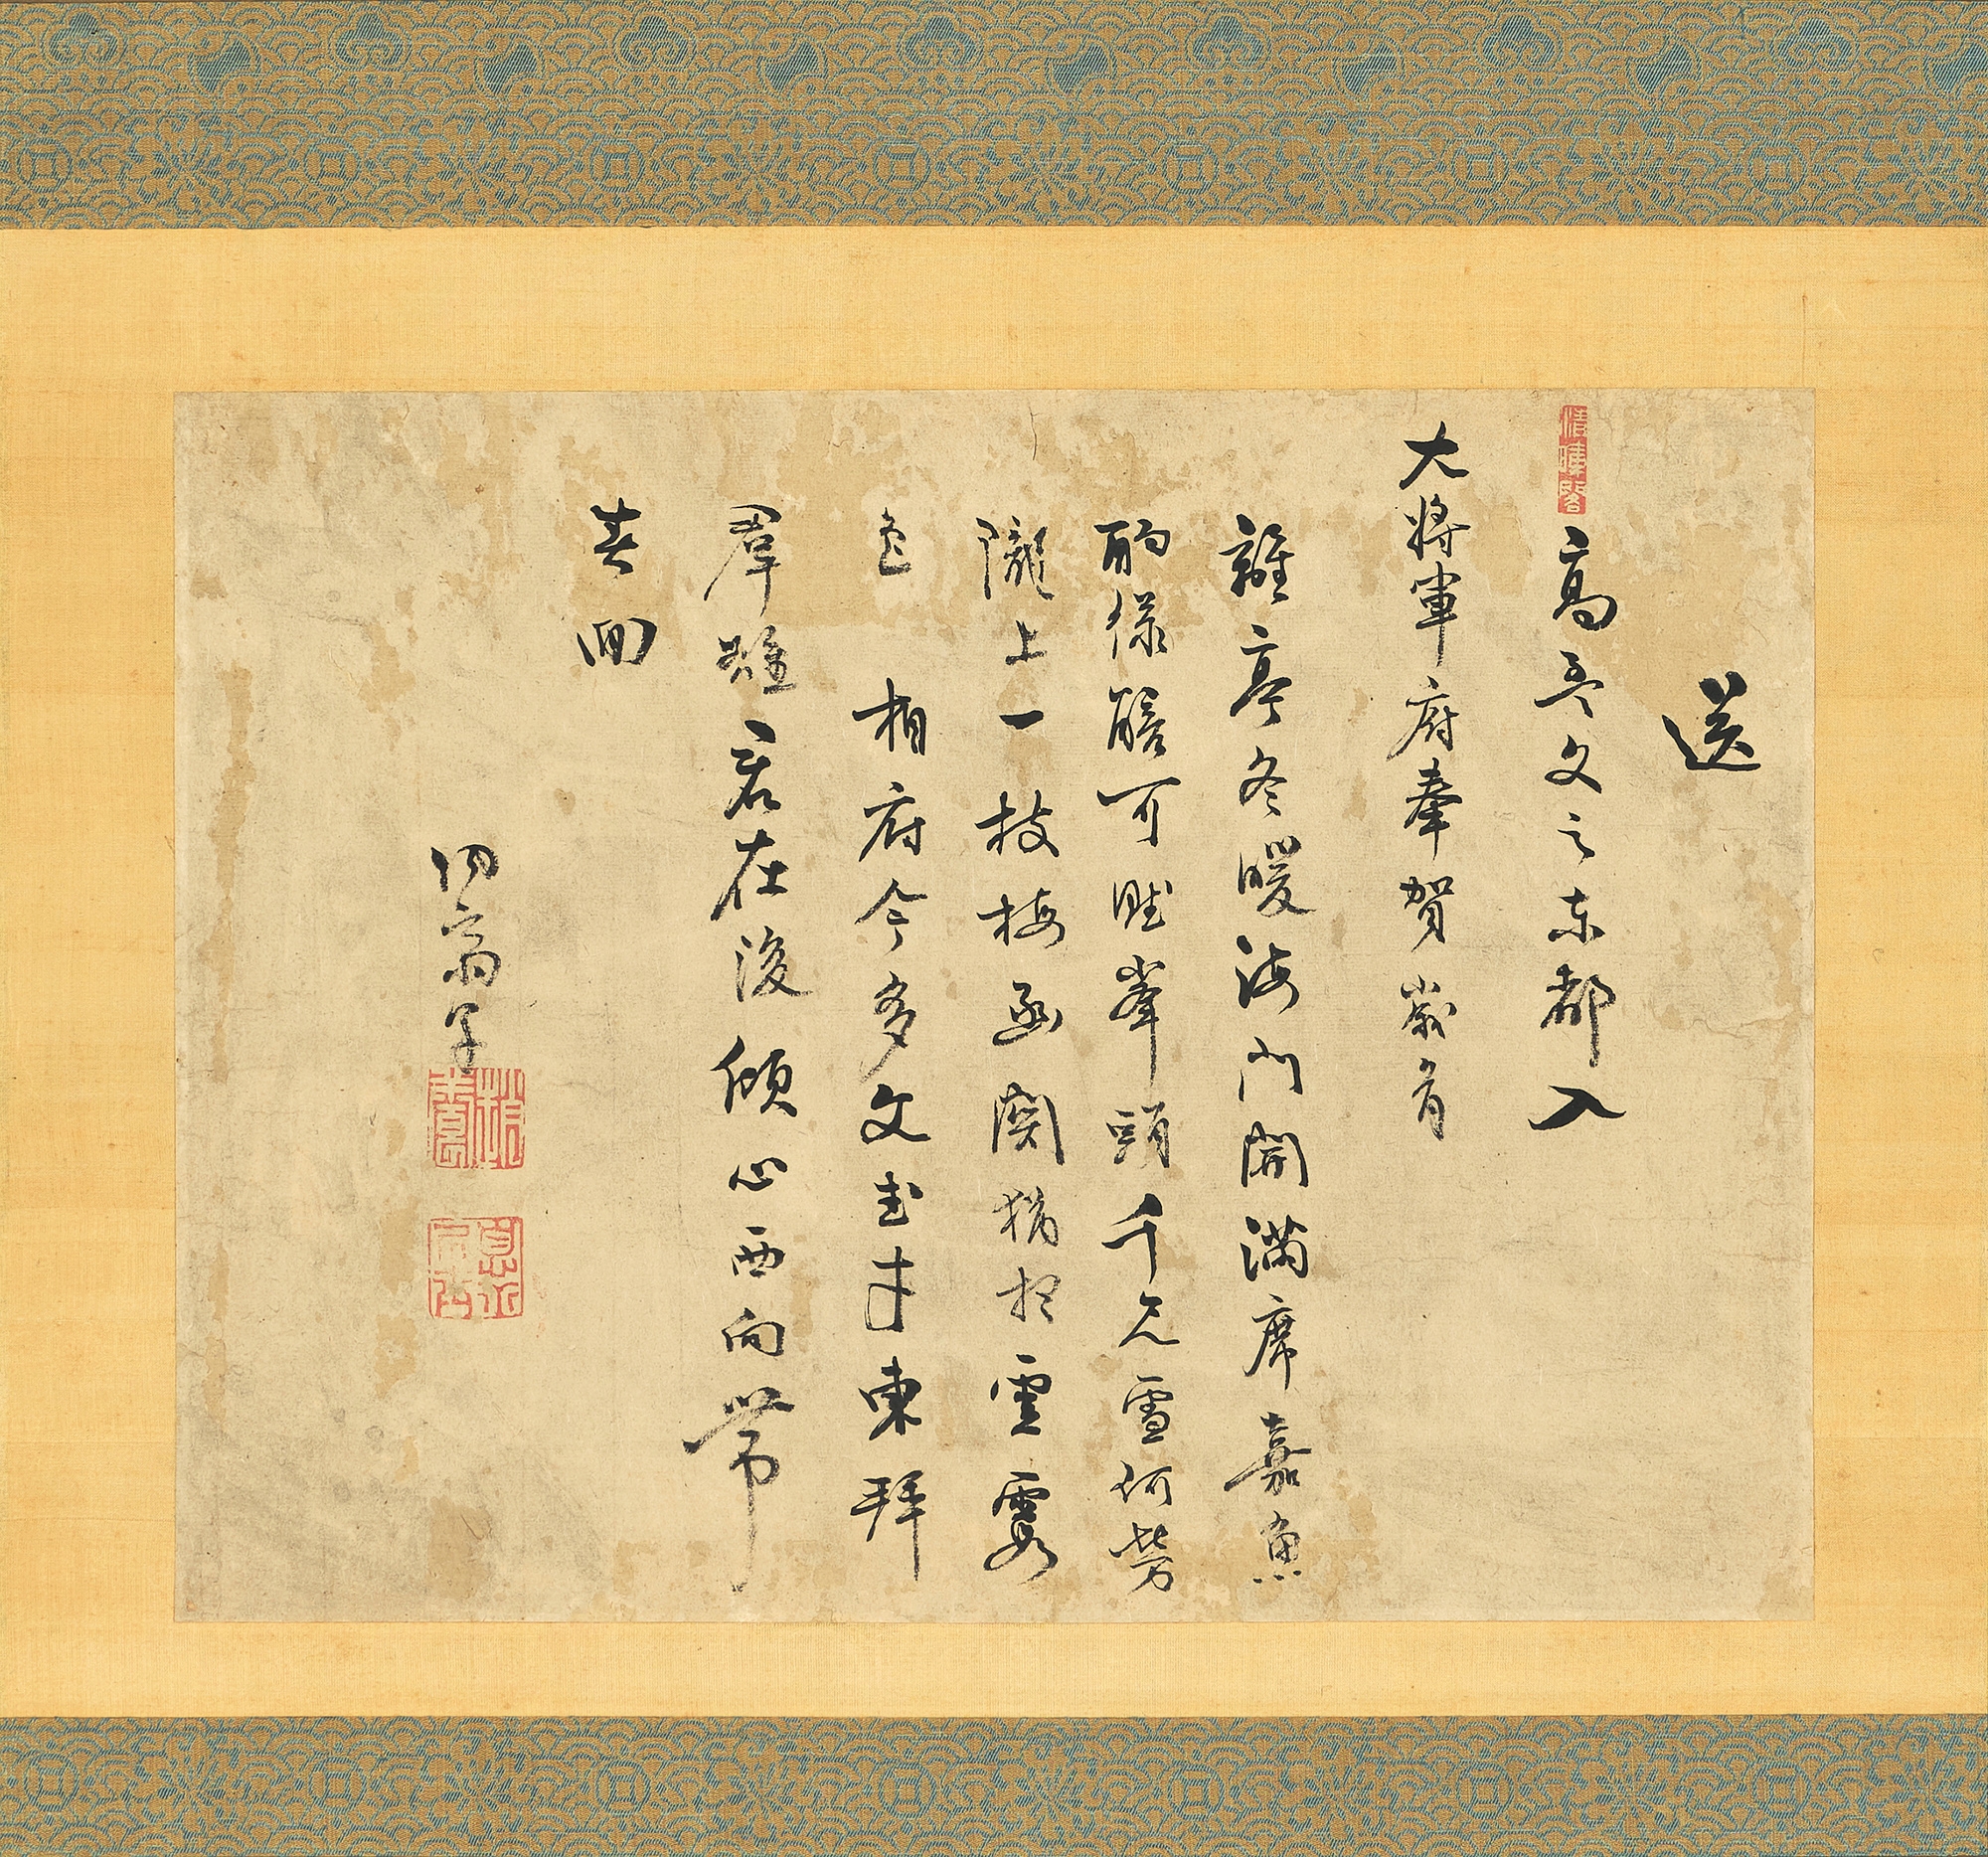 送
清暉閣
高文之东都入
大將軍府奉賀歲首
離亭冬暖海門開滿席嘉魚
酌綠醅可賦峯頭千尺雪何勞
隴上一枝梅函關猶抱雲霞
色相府今多文武才東拜
羣雄君在後傾心西向帶
春回